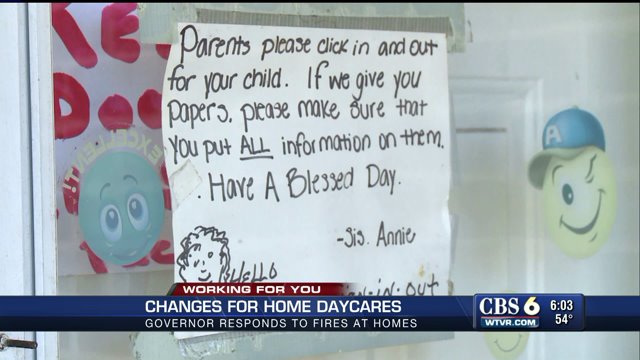 Parents please click in and out
for your child. If we give you
papers, please make sure that
you put ALL information on them.
. Have A Blessed Day.
-Sis. Annie
HELLO
-in-out
EXCELLENT!
A
WORKING FOR YOU
CHANGES FOR HOME DAYCARES
GOVERNOR RESPONDS TO FIRES AT HOMES
CBS 6
WTVR.COM
6:03
54°